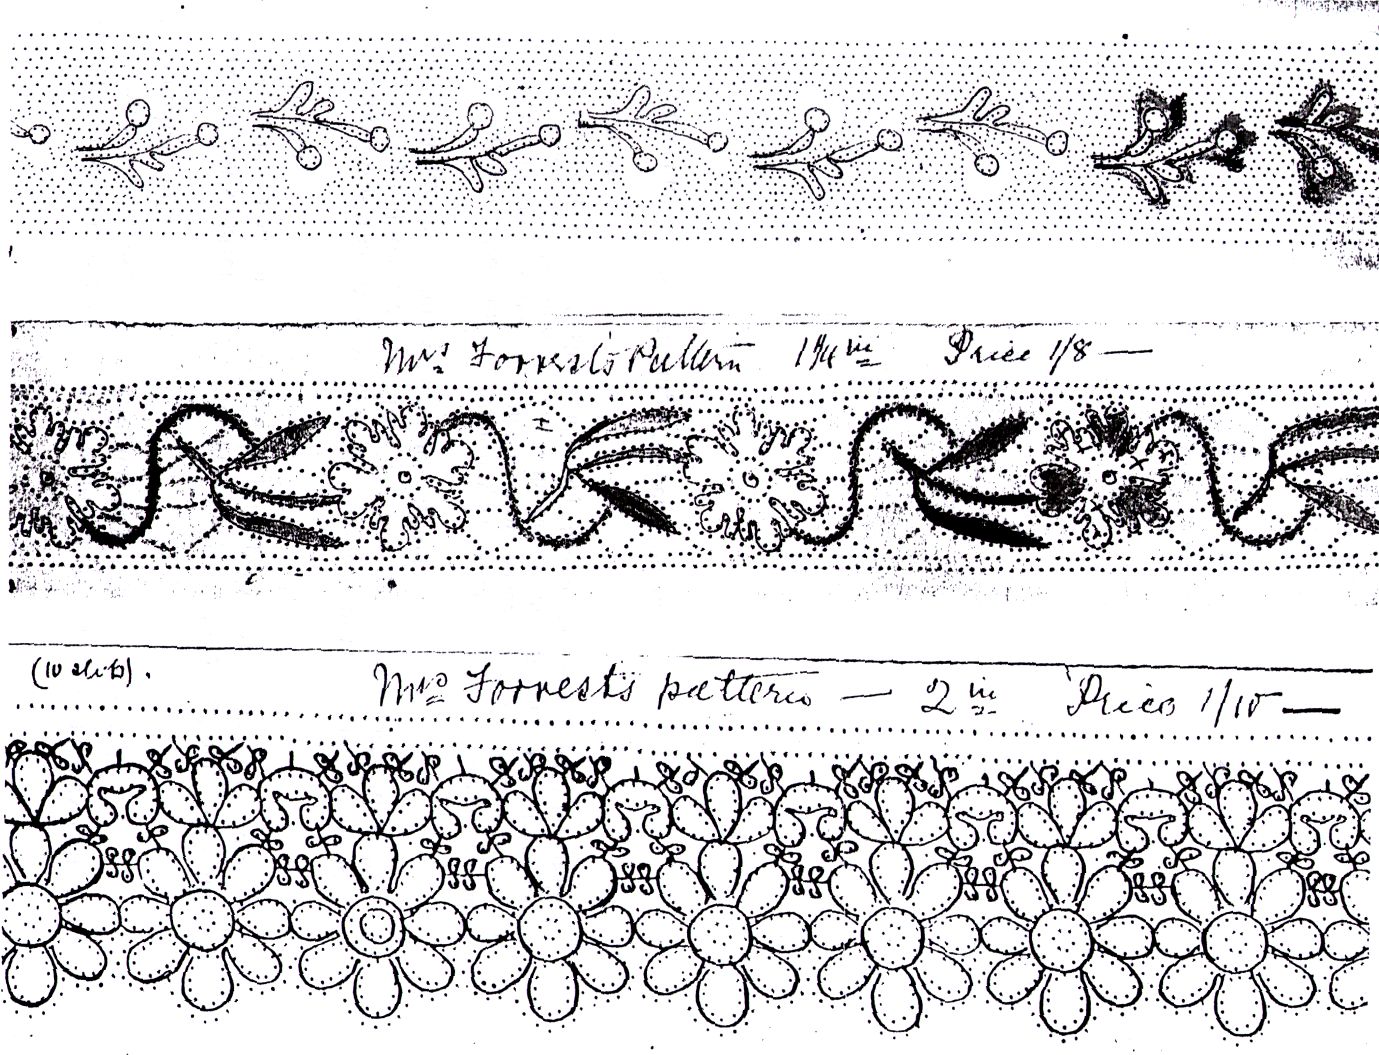 Mrs Forrest's Pattern 1¼ in Price 1/8 —
(10 slits).
Mrs Forrest's pattern — 2 in Price 1/10 —